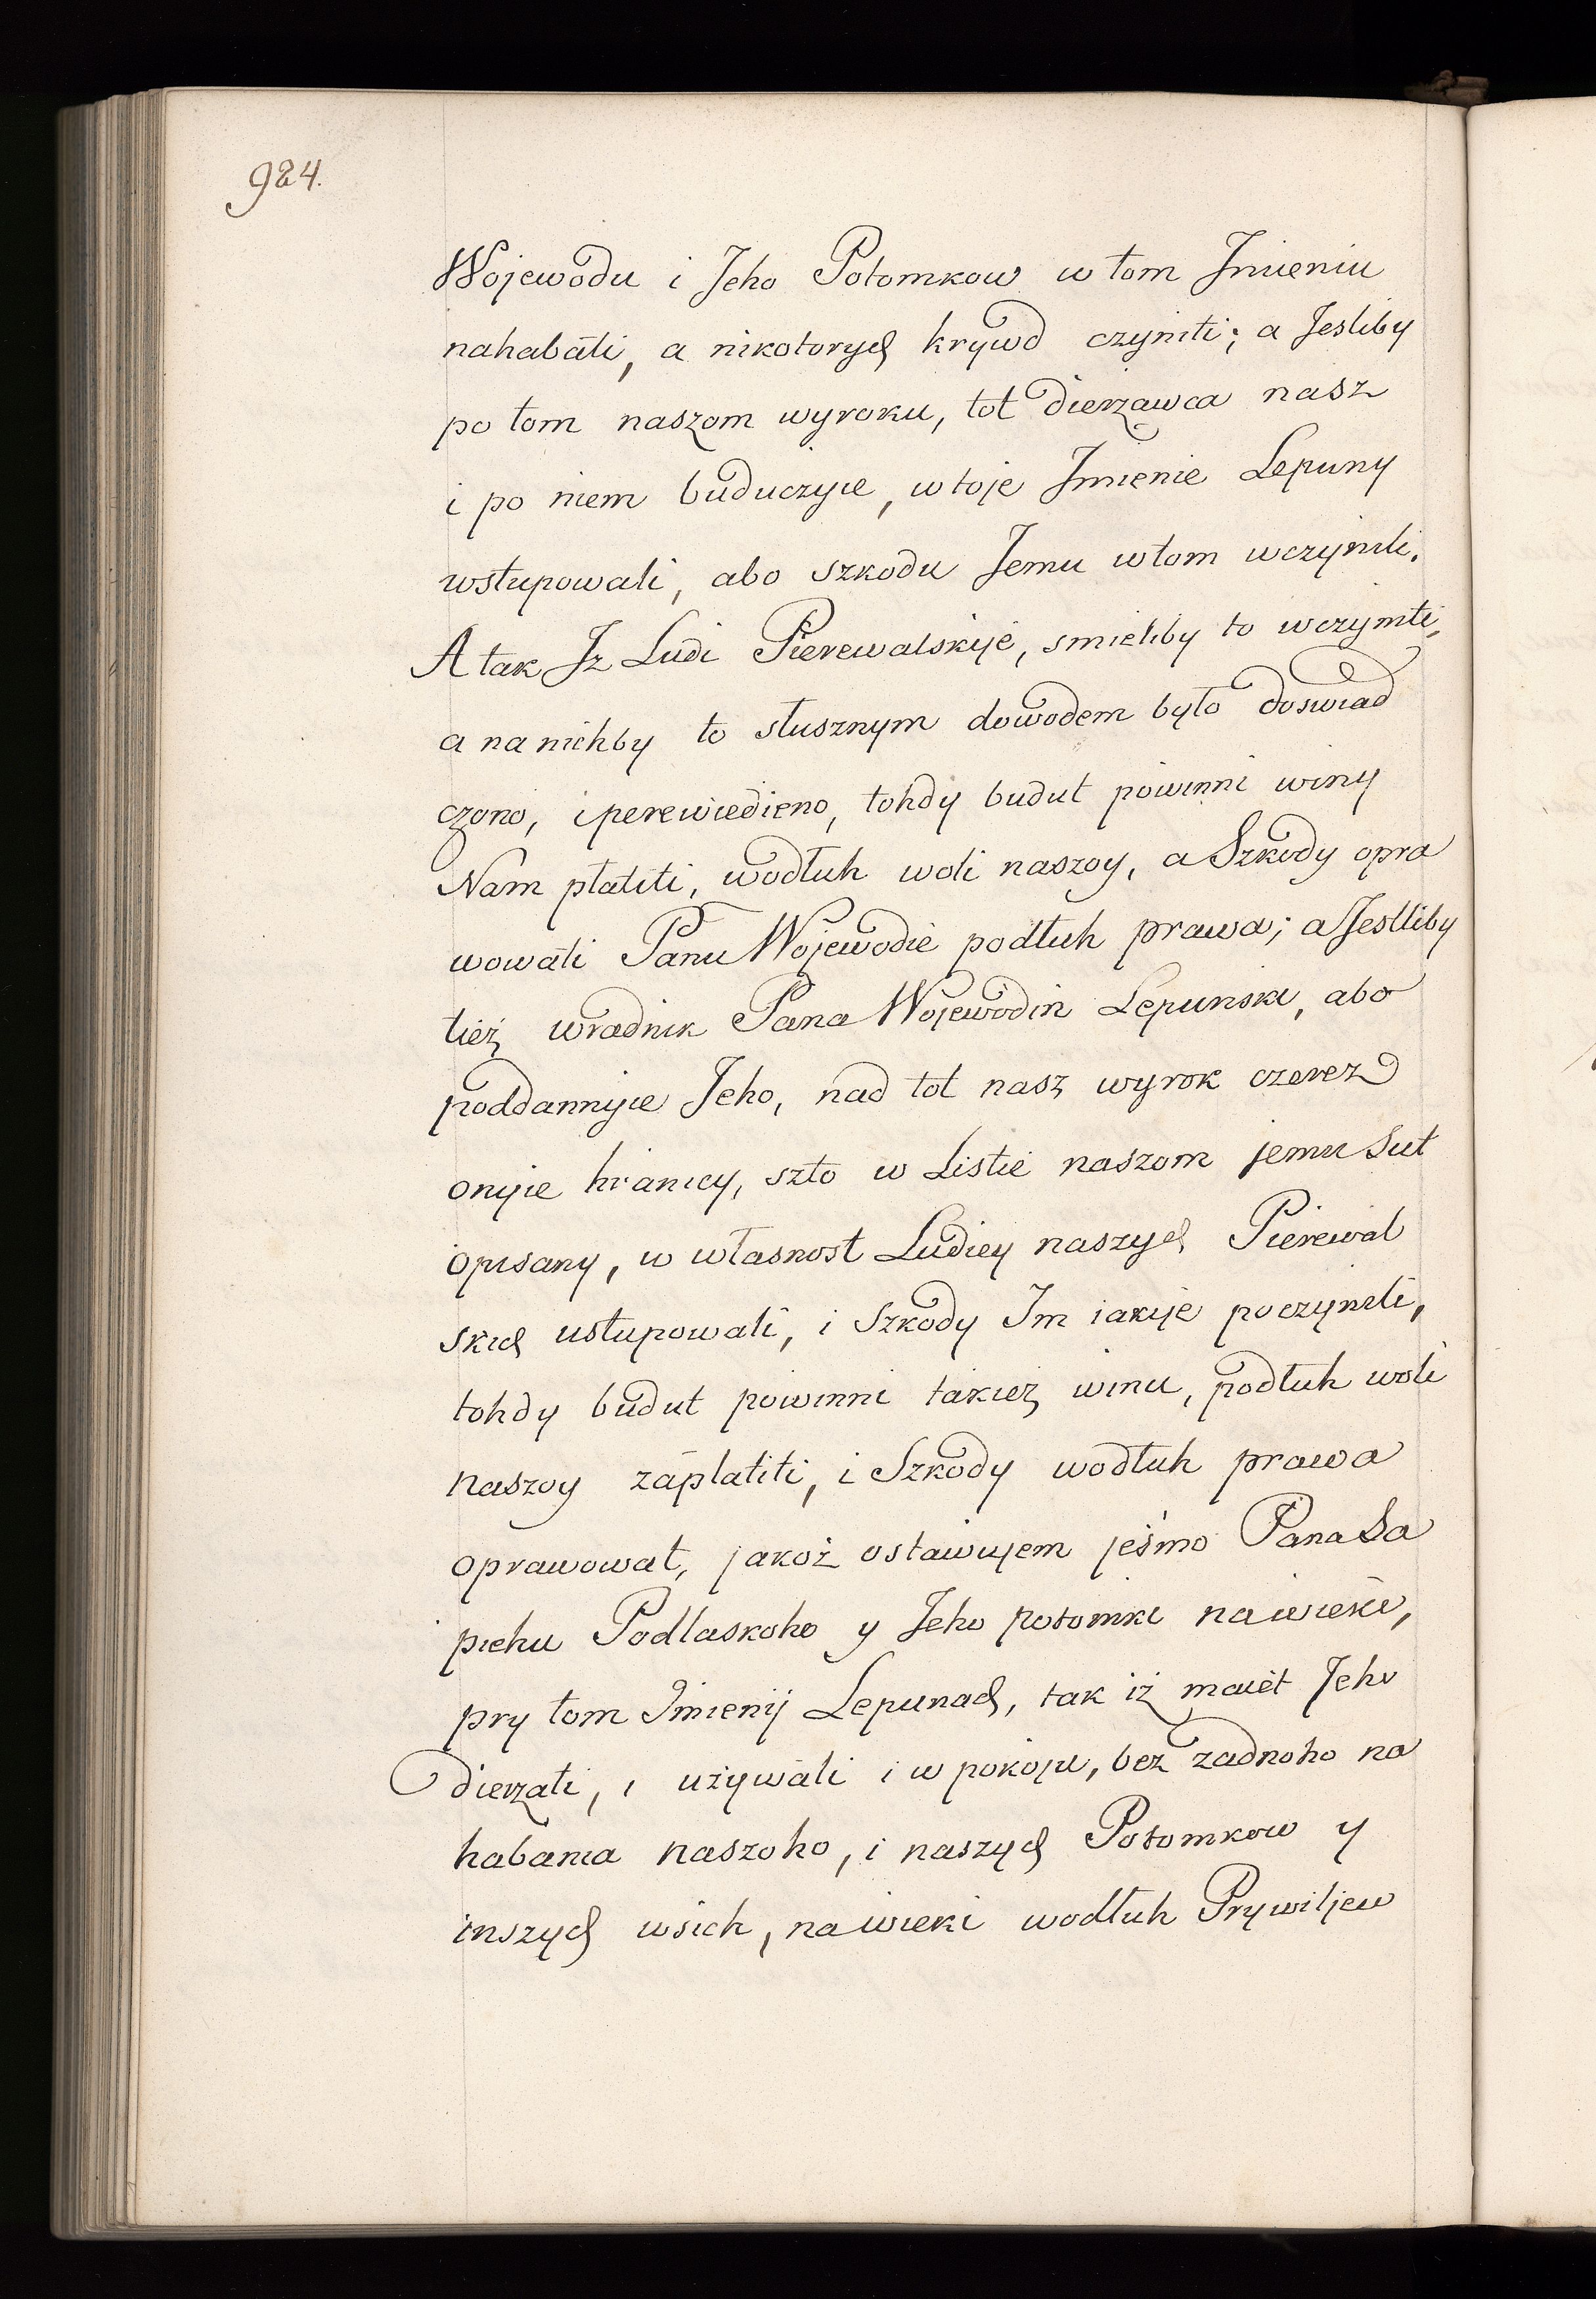 984.
Wojewodu i Jeho Potomkow w tom Jmieniu
nahabáti, a nikotorych krywd czyniti; a Jesliby
po tom naszom wyroku, tot dierżawca nasz
i po niem buduczyie, w toje Jmienie Lepuny
wstupowali, abo szkodu Jemu w tom wczynili.
A tak Jz Ludi Pierewalskije, smieliby to wczyniti,
a na nichby to słusznym dowodem było doswiad
czono, i perewiedieno, tohdy budut powinni winy
Nam płatiti, wodłuh woli naszoy, a Szkody opra
wowati Panu Wojewodie podłuh prawa; a Jestliby
tież wradnik Pana Wojewodin Lepunski, abo
poddannyie Jeho, nad tot nasz wyrok czerez
onyie hranicy, szto w Listie naszom jemu Sut
opisany, w własnost Ludiey naszych Pierewal
skich ustupowali, i Szkody Im iakije poczynili,
tohdy budut powinni takież winu, podłuh woli
naszoy zapłatiti, i Szkody wodłuh prawa
oprawowat, jakoż ostawujem jeśmo Pana Sa
piehu Podlaskoho y Jeho potomki nawieki,
pry tom Jmienij Lepunach, tak iż maiet Jeho
dierzati, i używáli i w pokoju, bez żadnoho na
habania naszoho, i naszych Potomkow y
inszych wsich, na wieki wodłuh Prywiljew